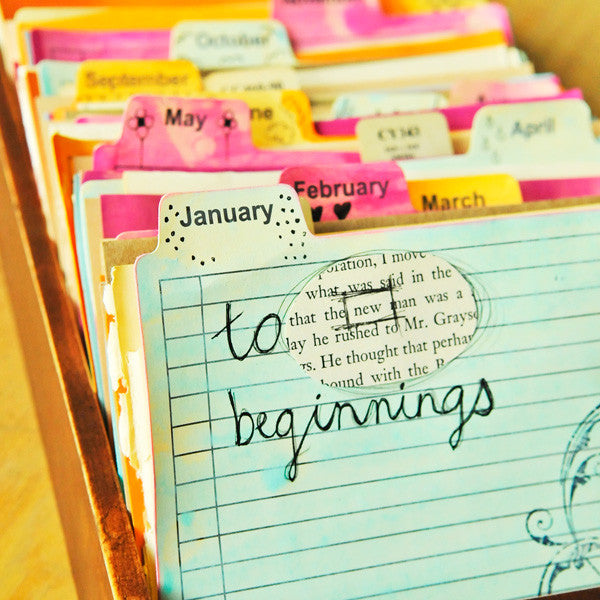 October
September
May
ne
CV 343
April
February
March
January
poration, I move
what was said in the
that the new man was a
lay he rushed to Mr. Grayso
rs. He thought that perhap
bound with the R
to
beginnings